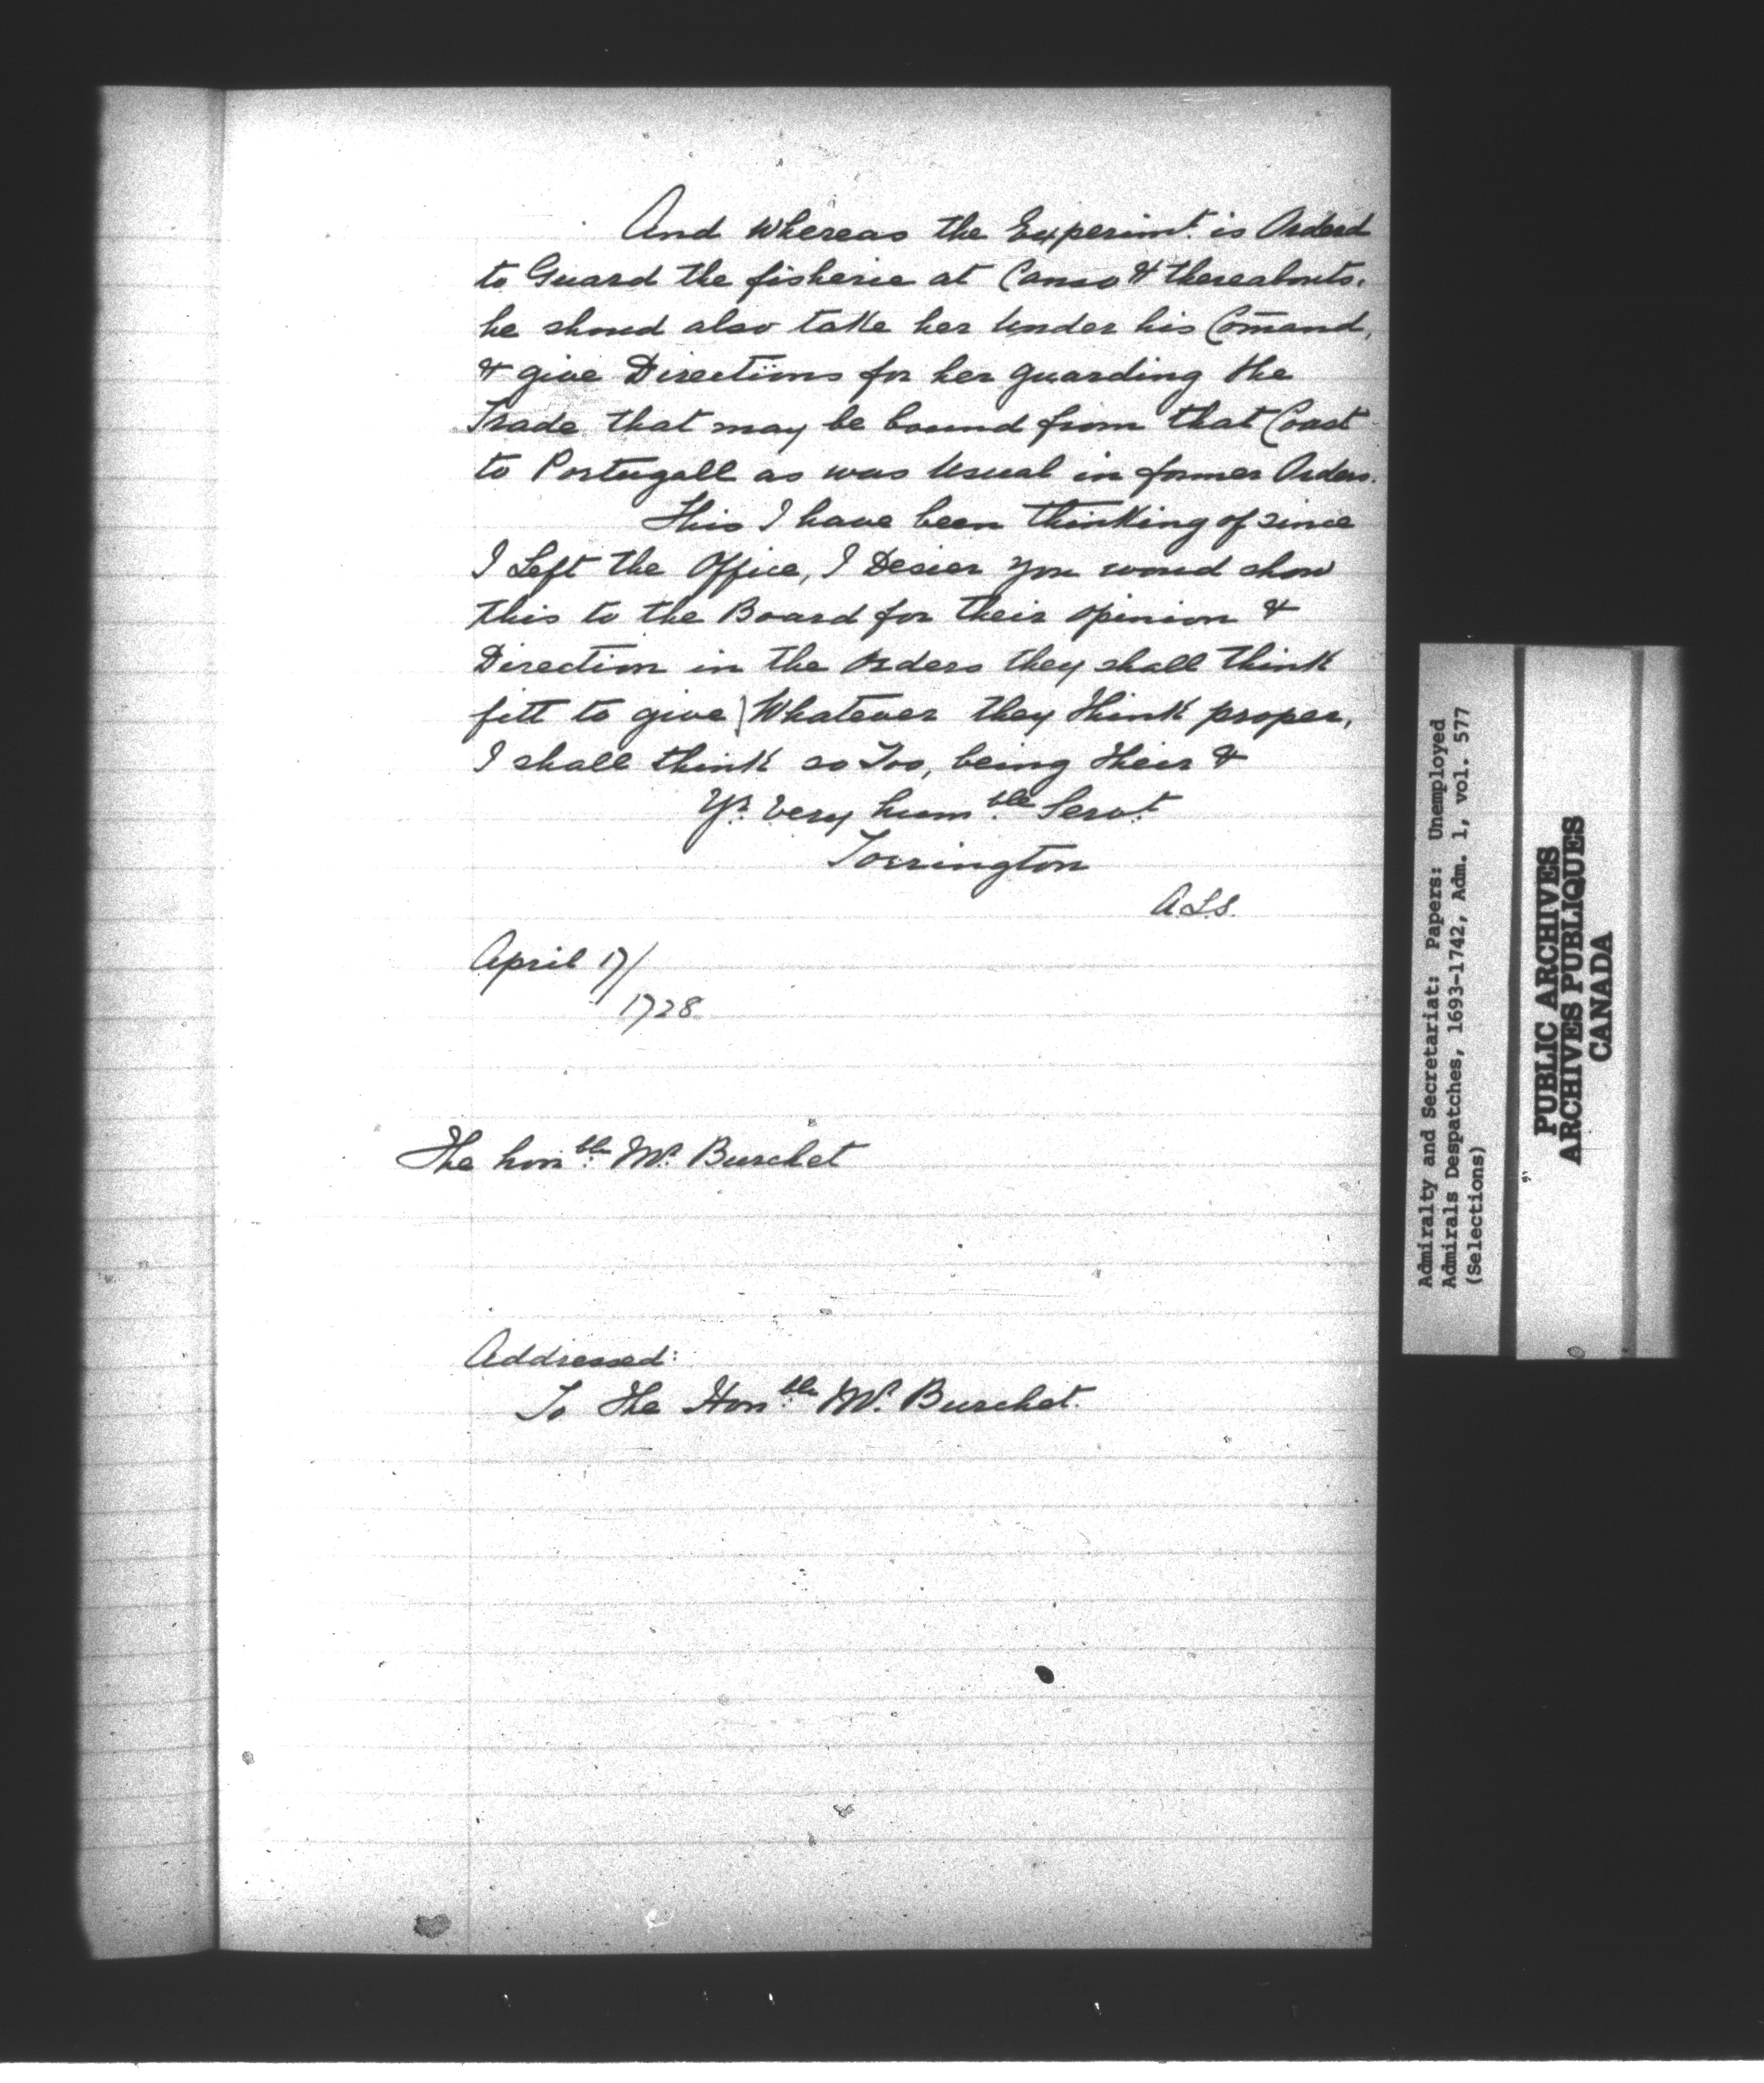 And whereas the Experimt. is Orderd
to Guard the fisherie at Canso & thereabouts.
he shoud also take her under his Comand,
& give Directions for her guarding the
Trade that may be bound from that Coast
to Portugall as was Usual in former Orders.
This I have been thinking of since
I Left the Office, I Desier you woud show
this to the Board for their opinion &
Direction in the orders they shall think
fitt to give) Whatever they think proper,
I shall think so Too, being their &
Yr. very humble. Servt.
Torrington
A.L.S.
April 17/
1728
The honble. Mr. Burchet
Addressed:
To the Honble. Mr. Burchet.
Admiralty and Secretariat: Papers: Unemployed
Admirals Despatches, 1693-1742, Adm. 1, vol. 577
(Selections)
PUBLIC ARCHIVES
ARCHIVES PUBLIQUES
CANADA